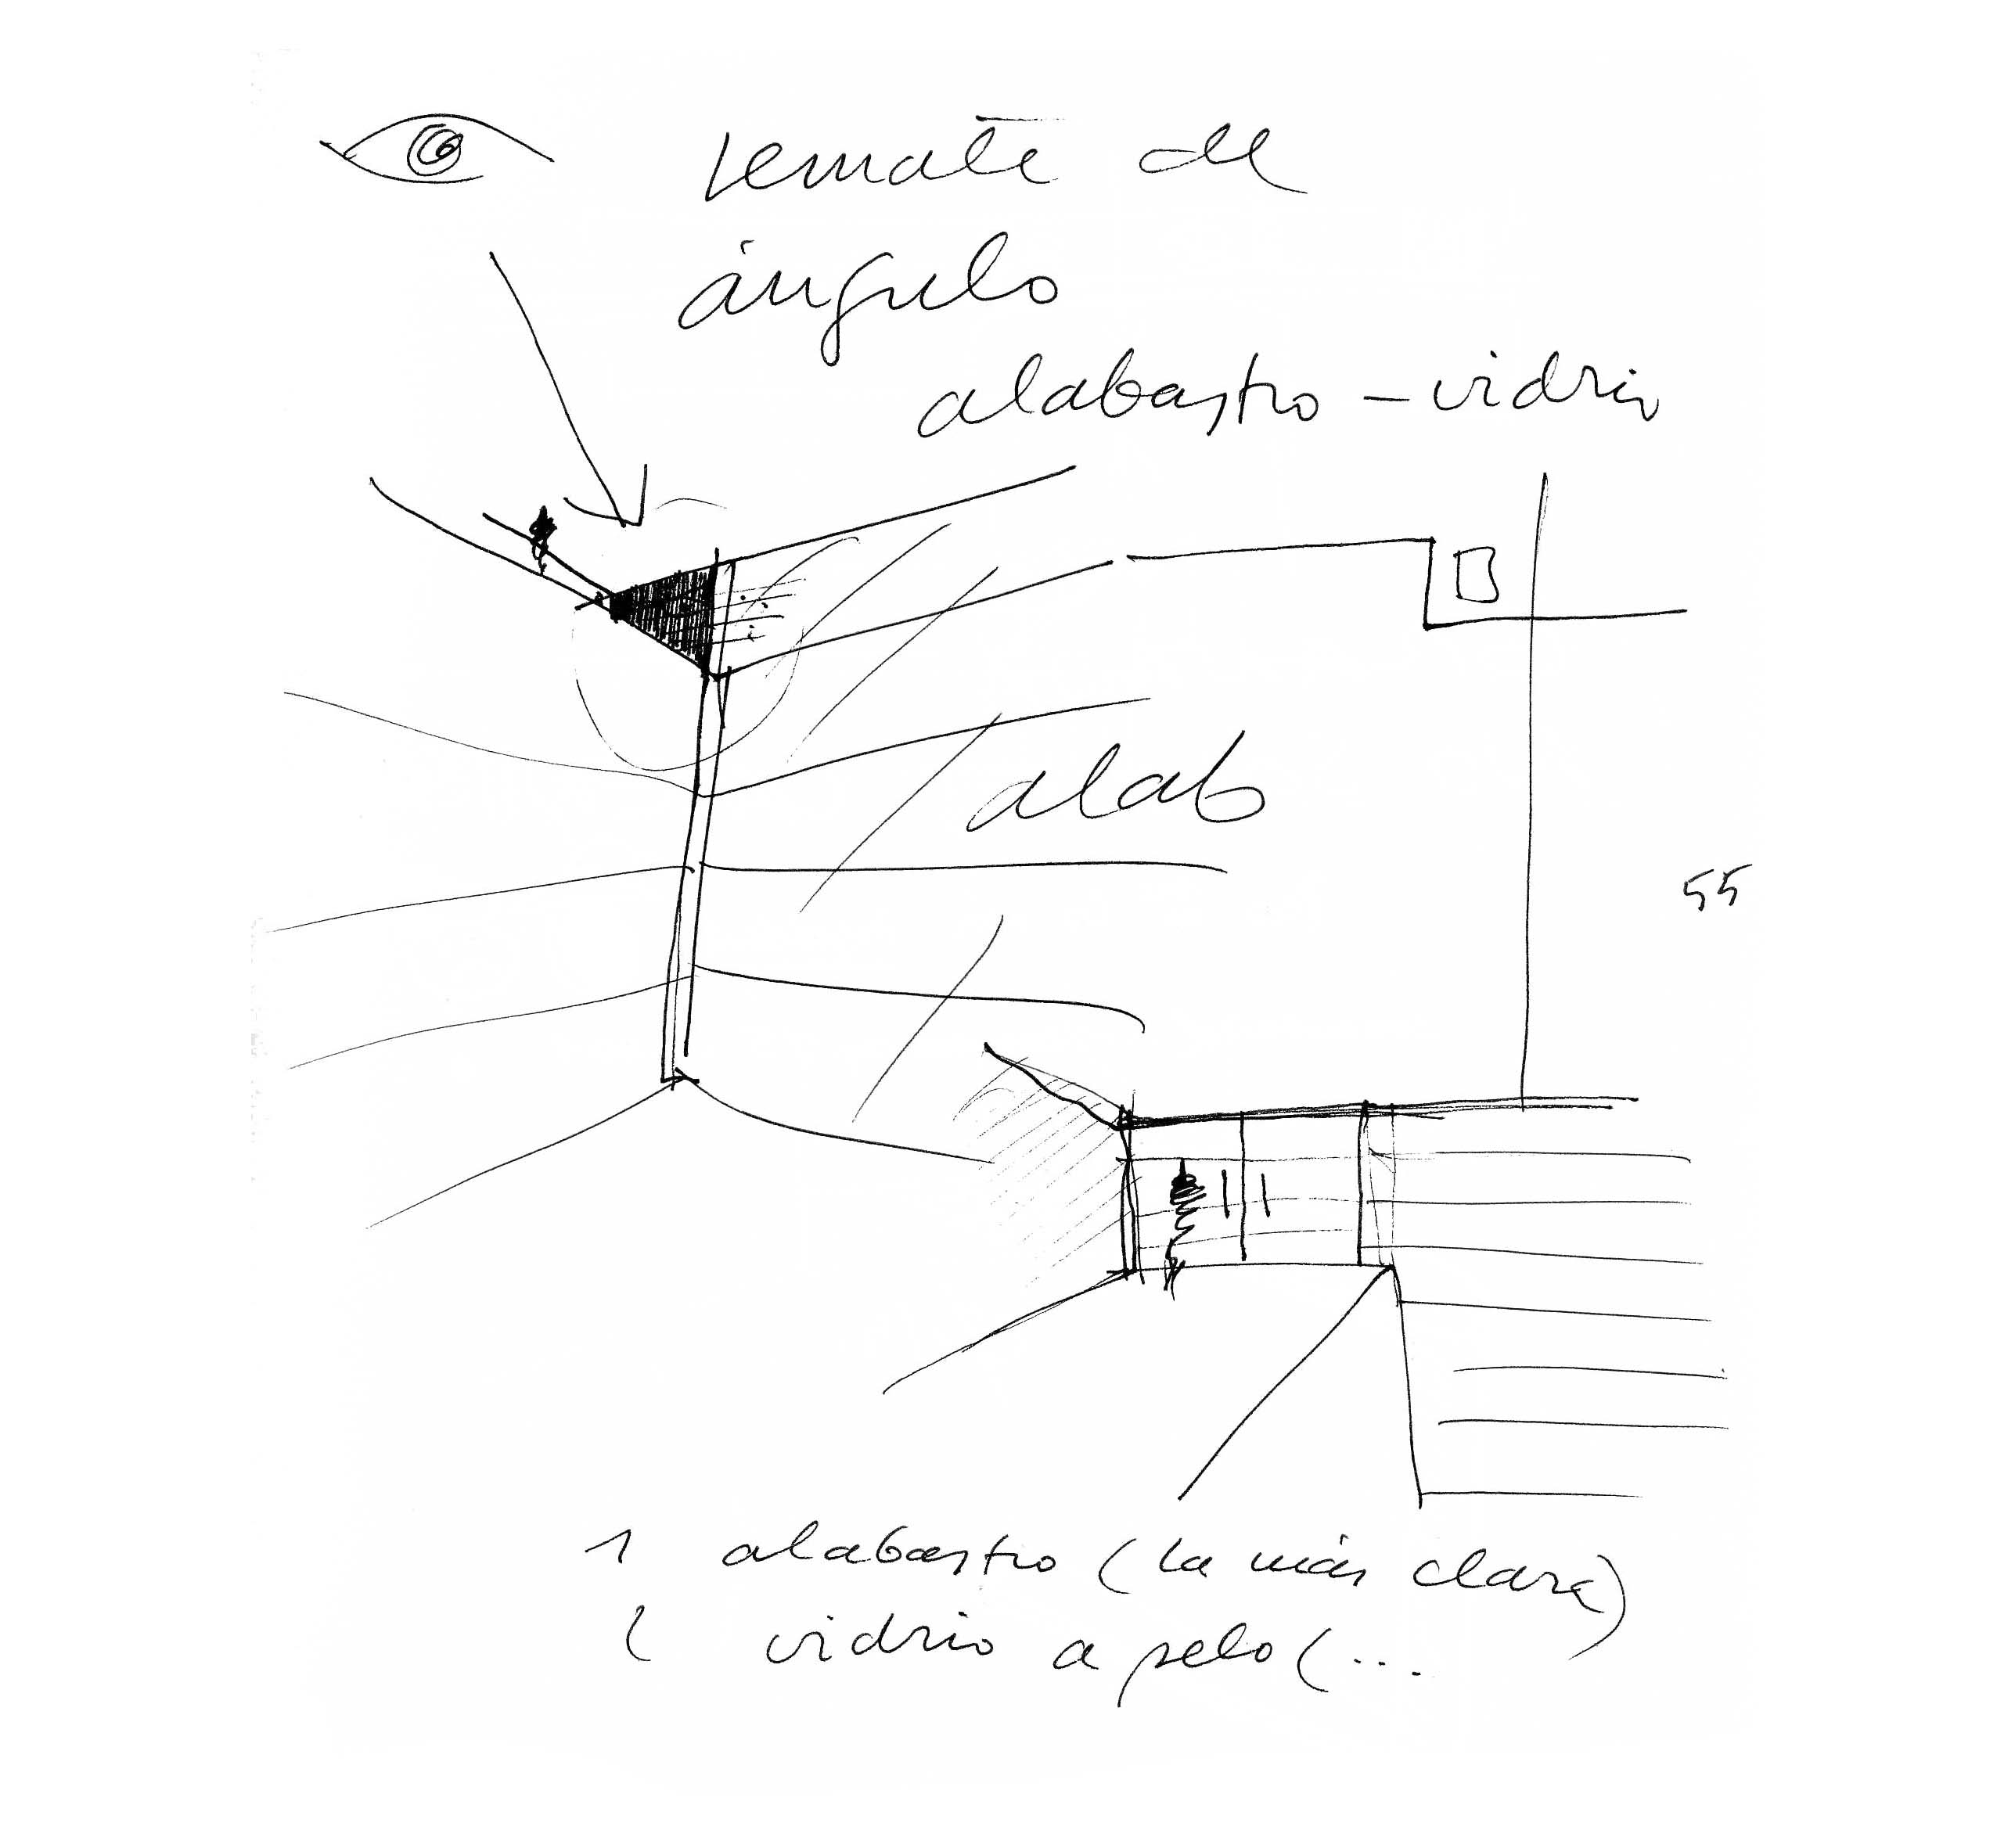 remate de
ángulo
alabastro – vidrio
alab
55
1 alabastro (la más clara)
2 vidrio a pelo (...